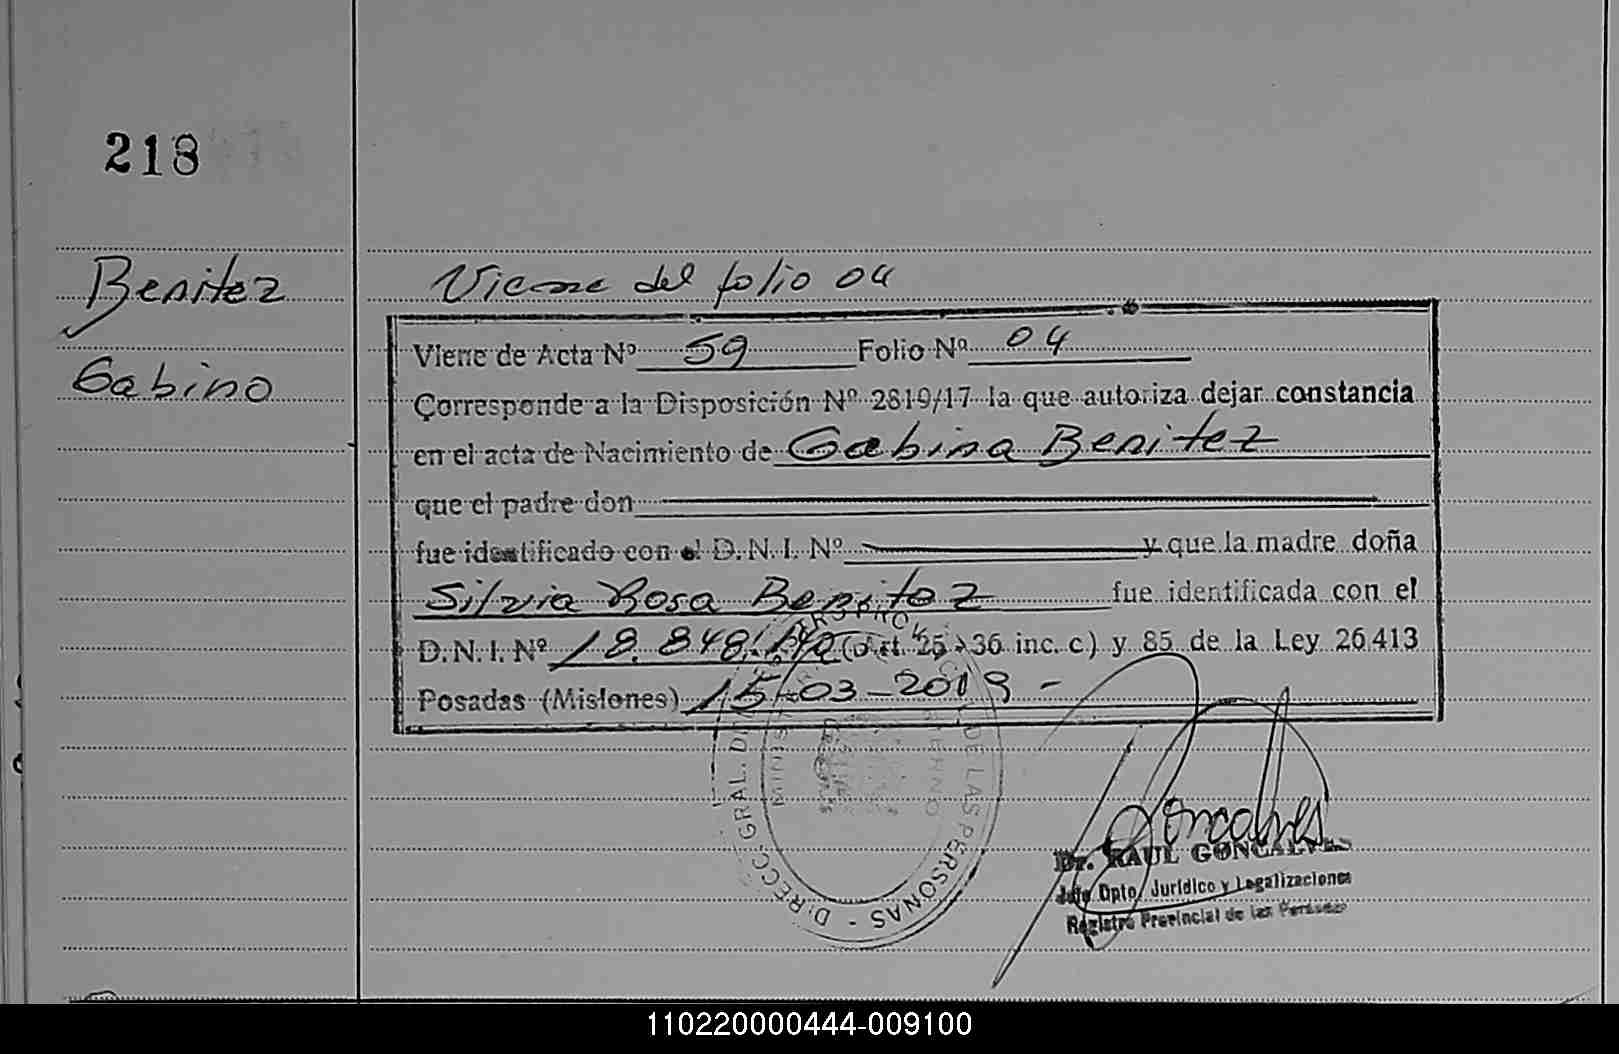 218
Benitez
Gabino
Viene del folio 04
Viene de Acta Nº 59 Folio Nº 04
Corresponde a la Disposición Nº 2819/17 la que autoriza dejar constancia
en el acta de Nacimiento de Gabina Benitez
que el padre don
fue identificado con el D.N.I. Nº y que la madre doña
Silvia Rosa Benitez fue identificada con el
D.N.I. Nº 18.848.140 (Art. 25, 36 inc. c) y 85 de la Ley 26413
Posadas (Misiones) 15-03-2019 -
DIRECC. GRAL. DE LAS PERSONAS -
Goncalves
Dr. RAUL GONCALVES
Jefe Dpto. Jurídico y Legalizaciones
Registro Provincial de las Personas
110220000444-009100